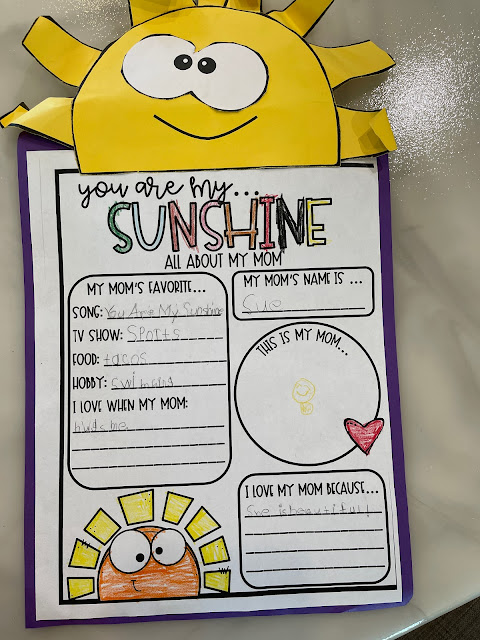 you are my...
SUNSHINE
ALL ABOUT MY MOM
MY MOM'S FAVORITE...
SONG: You Are My Sunshine
TV SHOW: Sports
FOOD: tacos
HOBBY: swimming
I LOVE WHEN MY MOM:
hugs me
MY MOM'S NAME IS ...
Sue
THIS IS MY MOM...
I LOVE MY MOM BECAUSE...
She is beautifull